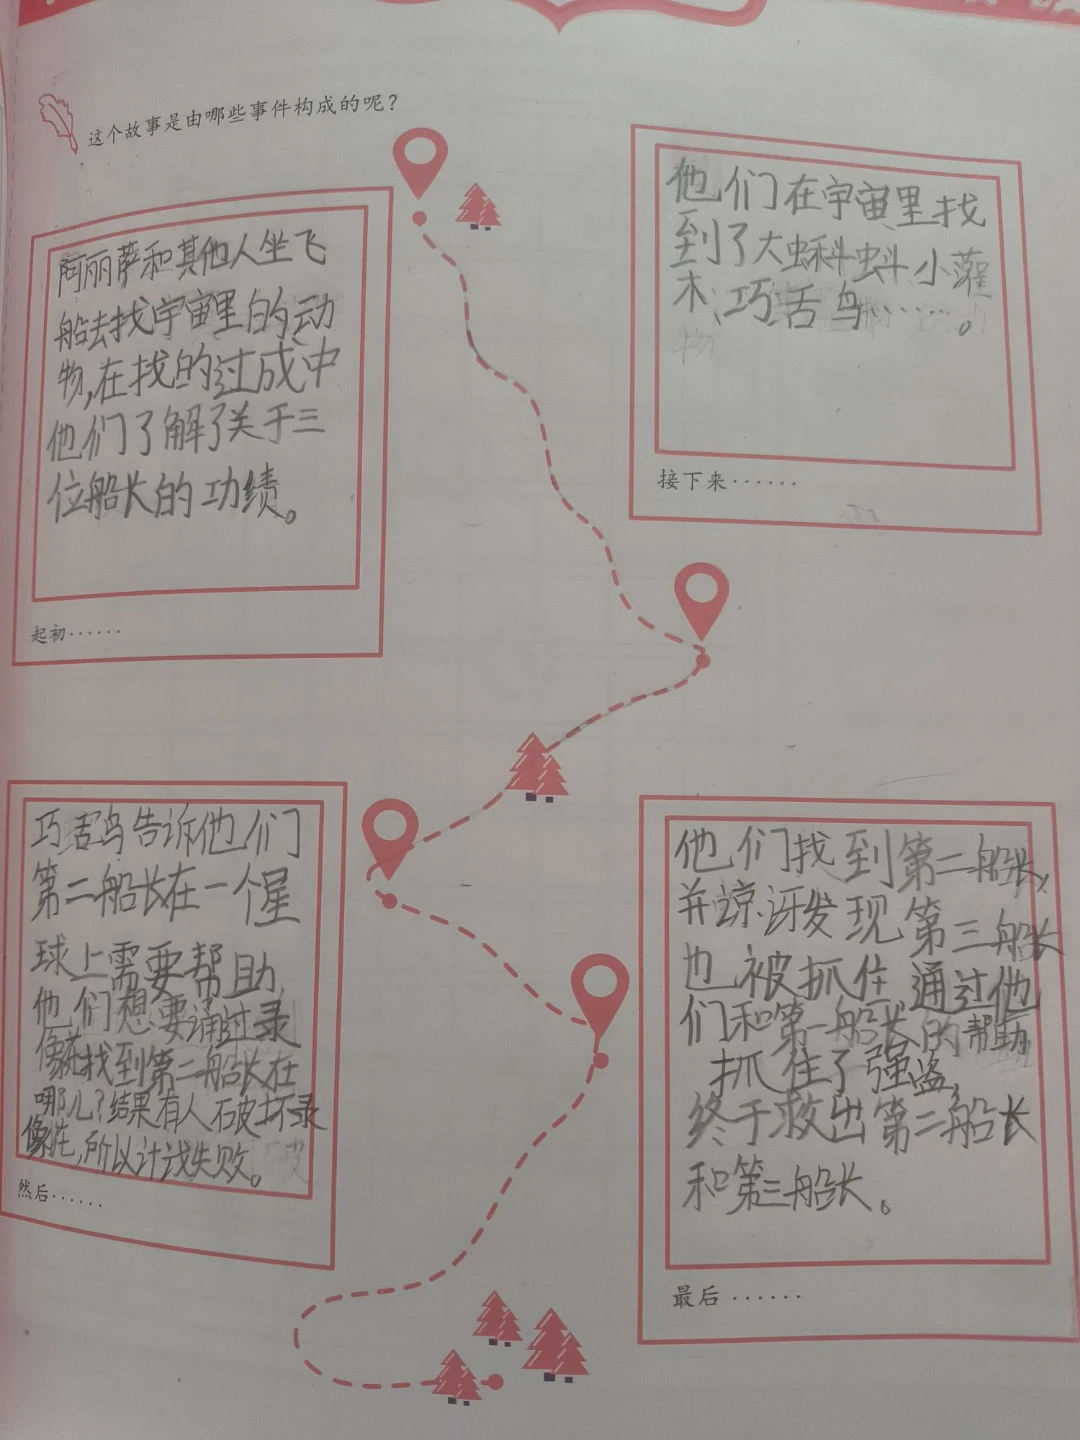 这个故事是由哪些事件构成的呢？
阿丽萨和其他人坐飞
船去找宇宙里的动
物,在找的过成中
他们了解了关于三
位船长的功绩。
起初······
他们在宇宙里找
到了大蝌蚪、小灌
木、巧舌鸟······。
接下来······
巧舌鸟告诉他们
第二船长在一个星
球上需要帮助,
他们想要通过录
像花找到第二船长在
哪儿?结果有人破坏录
像花,所以计划失败。
然后······
他们找到第二船长,
并惊讶发现第三船长
也被抓住通过他
们和第一船长的帮助
抓住了强盗,
终于救出第二船长
和第三船长。
最后······